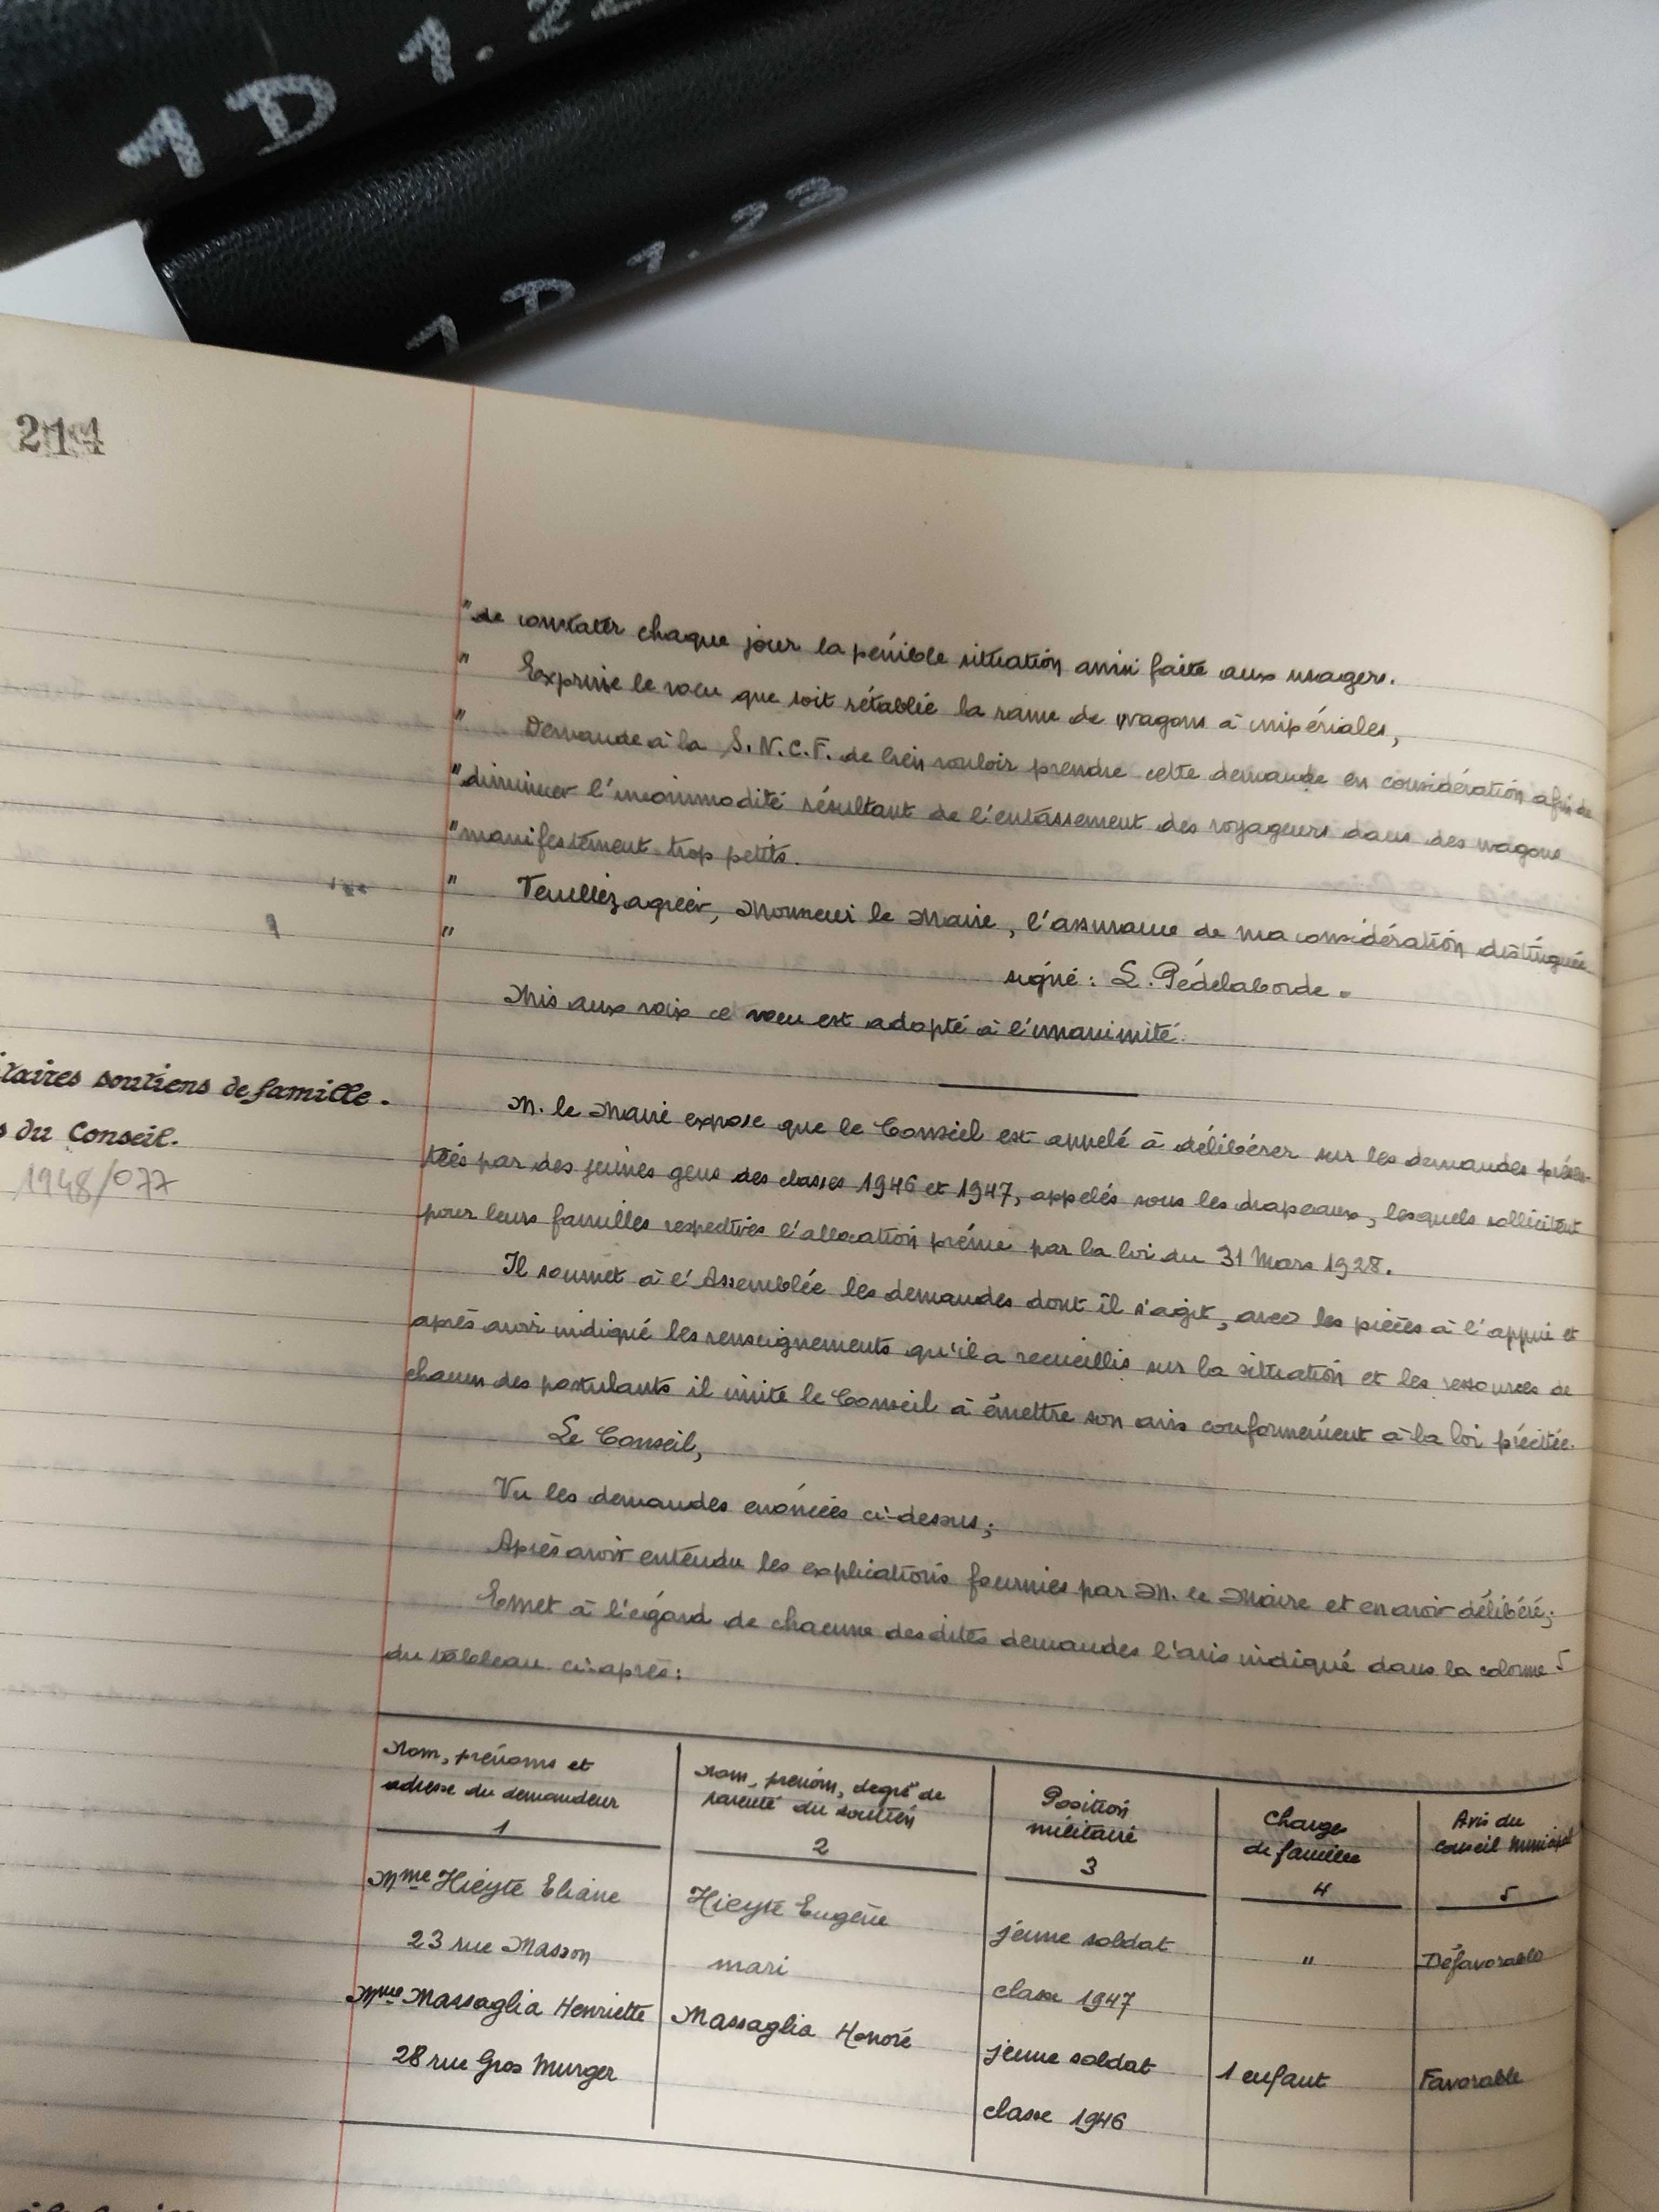 1 D 1.22
1 D 1.23
214
"de constater chaque jour la pénible situation ainsi faite aux usagers.
" Exprime le voeu que soit rétablie la rame de wagons à impériales,
" Demande à la S.N.C.F. de bien vouloir prendre cette demande en considération afin de
"diminuer l'incommodité résultant de l'entassement des voyageurs dans des wagons
"manifestement trop petits.
" Veuillez agréer, Monsieur le Maire, l'assurance de ma considération distinguée
" signé: L. Pédelaborde.
Mis aux voix ce voeu est adopté à l'unanimité.
taires soutiens de famille.
s du Conseil.
1948/077
M. le Maire expose que le Conseil est appelé à délibérer sur les demandes présen-
tées par des jeunes gens des classes 1946 et 1947, appelés sous les drapeaux, lesquels sollicitent
pour leurs familles respectives l'allocation prévue par la loi du 31 Mars 1928.
Il soumet à l'Assemblée les demandes dont il s'agit, avec les pièces à l'appui et
après avoir indiqué les renseignements qu'il a recueillis sur la situation et les ressources de
chacun des postulants il invite le Conseil à émettre son avis conformément à la loi précitée.
Le Conseil,
Vu les demandes énoncées ci-dessus;
Après avoir entendu les explications fournies par M. le Maire et en avoir délibéré;
Emet à l'égard de chacune des dites demandes l'avis indiqué dans la colonne 5
du tableau ci-après:
Nom, prénoms et
adresse du demandeur
1
Nom, prénom, degré de
parenté du soutien
2
Position
militaire
3
Charges
de famille
4
Avis du
Conseil Municipal
5
Mme Hieyte Eliane
23 rue Masson
Hieyte Eugène
mari
jeune soldat
classe 1947
"
Défavorable
Mme Massaglia Henriette
28 rue Gros Murger
Massaglia Honoré
jeune soldat
classe 1946
1 enfant
Favorable